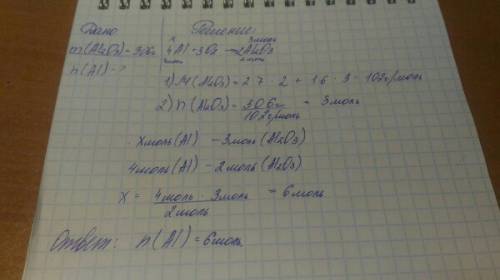 Дано Решение
x 3моль
m(Al₂O₃)=306г 4Al+3O₂→2Al₂O₃
n(Al)-? 4моль 2моль
1) M(Al₂O₃)=27·2+16·3=102г/моль
2) n(Al₂O₃)=306г/102г/моль = 3моль
xмоль(Al) - 3моль(Al₂O₃)
4моль(Al) - 2моль(Al₂O₃)
x = 4моль·3моль/2моль = 6моль
Ответ: n(Al)=6моль.